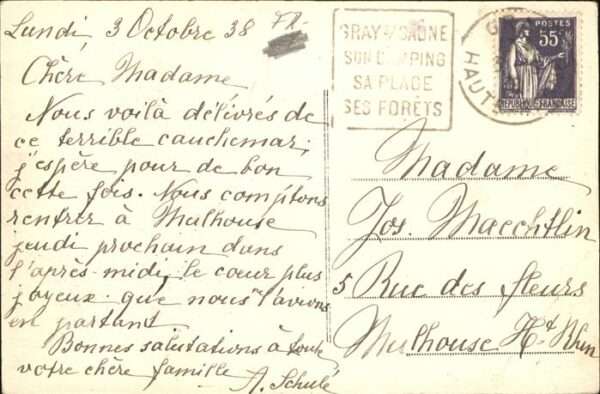 Lundi, 3 Octobre 38
Chère Madame,
Nous voilà délivrés de
ce terrible cauchemar,
j'espère pour de bon
cette fois. Nous comptons
rentrer à Mulhouse
jeudi prochain dans
l'après-midi, le cœur plus
joyeux que nous l'avions
en partant
Bonnes salutations à toute
votre chère famille
A. Schulé
GRAY S/SAONE
SON CAMPING
SA PLAGE
SES FORÊTS
GR
HAUTE
POSTES
55c
REPUBLIQUE FRANÇAISE
Madame
Jos. Maechtlin
5 Rue des fleurs
Mulhouse Ht Rhin